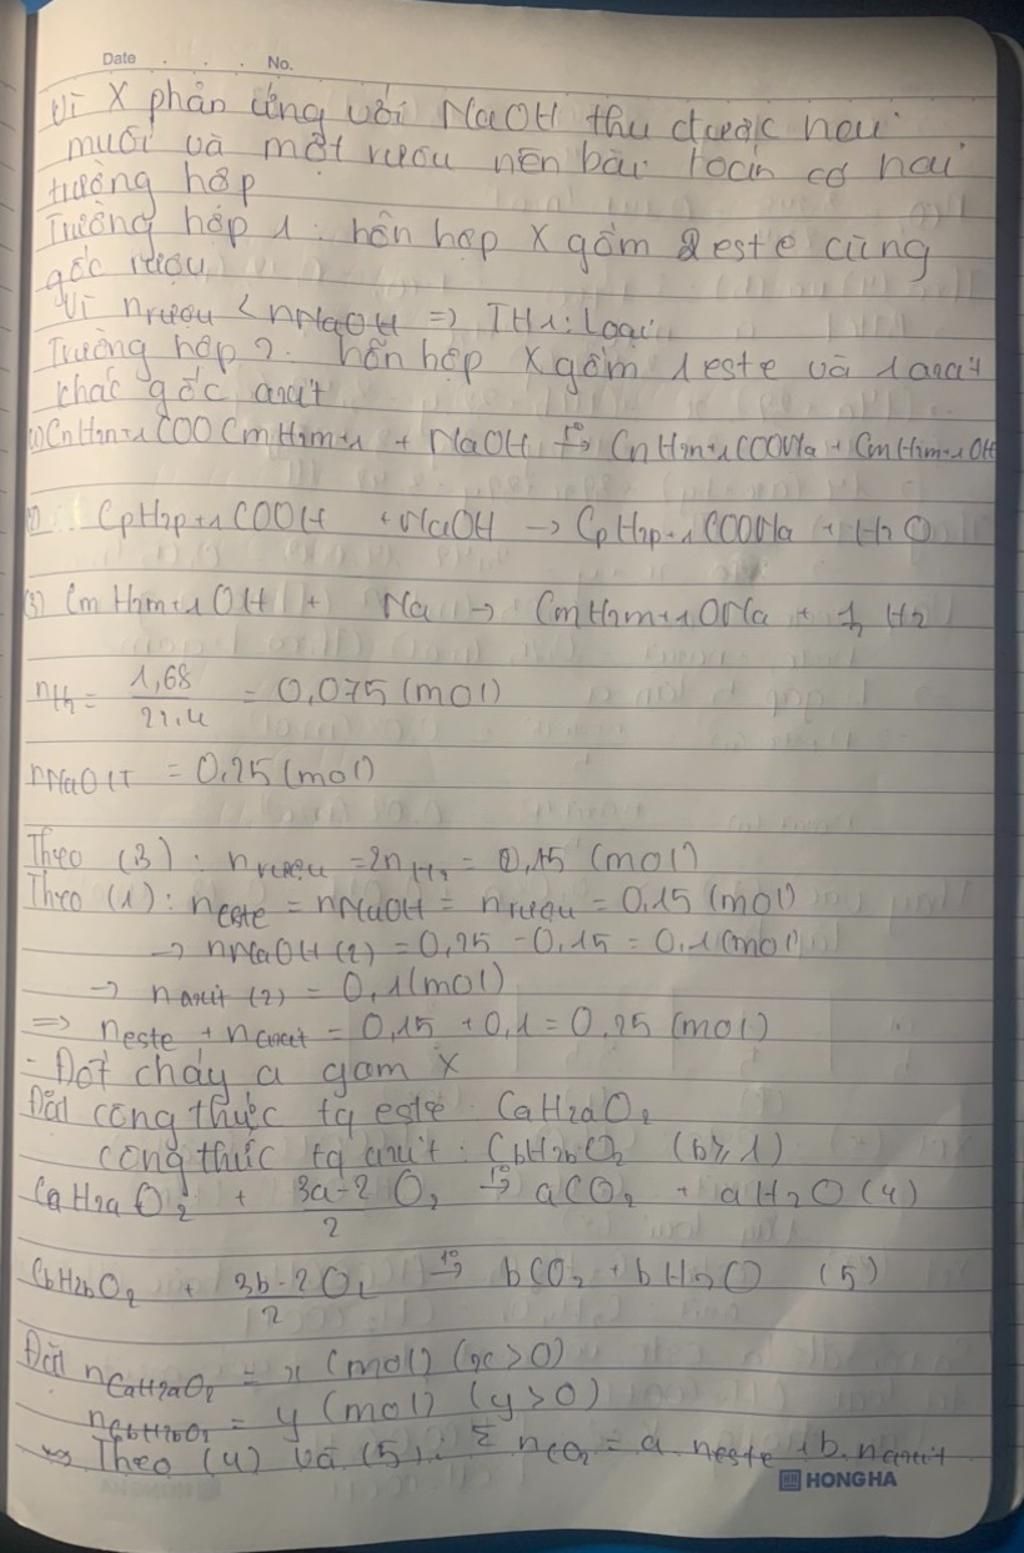 Date . . . No.
Vì X phản ứng với NaOH thu được hai
muối và một rượu nên bài toán có hai
trường hợp
Trường hợp 1: hỗn hợp X gồm 2 este cùng
gốc rượu
Vì nrượu < nNaOH => TH1: Loại
Trường hợp 2: hỗn hợp X gồm 1 este và 1 axit
khác gốc axit
(1) CnH2n+1COOCmH2m+1 + NaOH t°→ CnH2n+1COONa + CmH2m+1OH
(2) CpH2p+1COOH + NaOH → CpH2p+1COONa + H2O
(3) CmH2m+1OH + Na → CmH2m+1ONa + 1/2 H2
nH2 = 1,68/22,4 = 0,075 (mol)
nNaOH = 0,25 (mol)
Theo (3): nrượu = 2nH2 = 0,15 (mol)
Theo (1): neste = nNaOH = nrượu = 0,15 (mol)
→ nNaOH (2) = 0,25 - 0,15 = 0,1 (mol)
→ naxit (2) = 0,1 (mol)
=> neste + naxit = 0,15 + 0,1 = 0,25 (mol)
- Đốt cháy a gam X
Đặt công thức tq este: CaH2aO2
công thức tq axit: CbH2bO2 (b≥1)
CaH2aO2 + 3a-2/2 O2 t°→ aCO2 + aH2O (4)
CbH2bO2 + 3b-2/2 O2 t°→ bCO2 + bH2O (5)
Đặt nCaH2aO2 = x (mol) (x>0)
nCbH2bO2 = y (mol) (y>0)
Theo (4) và (5): Σ nCO2 = a.neste + b.naxit
HONG HA